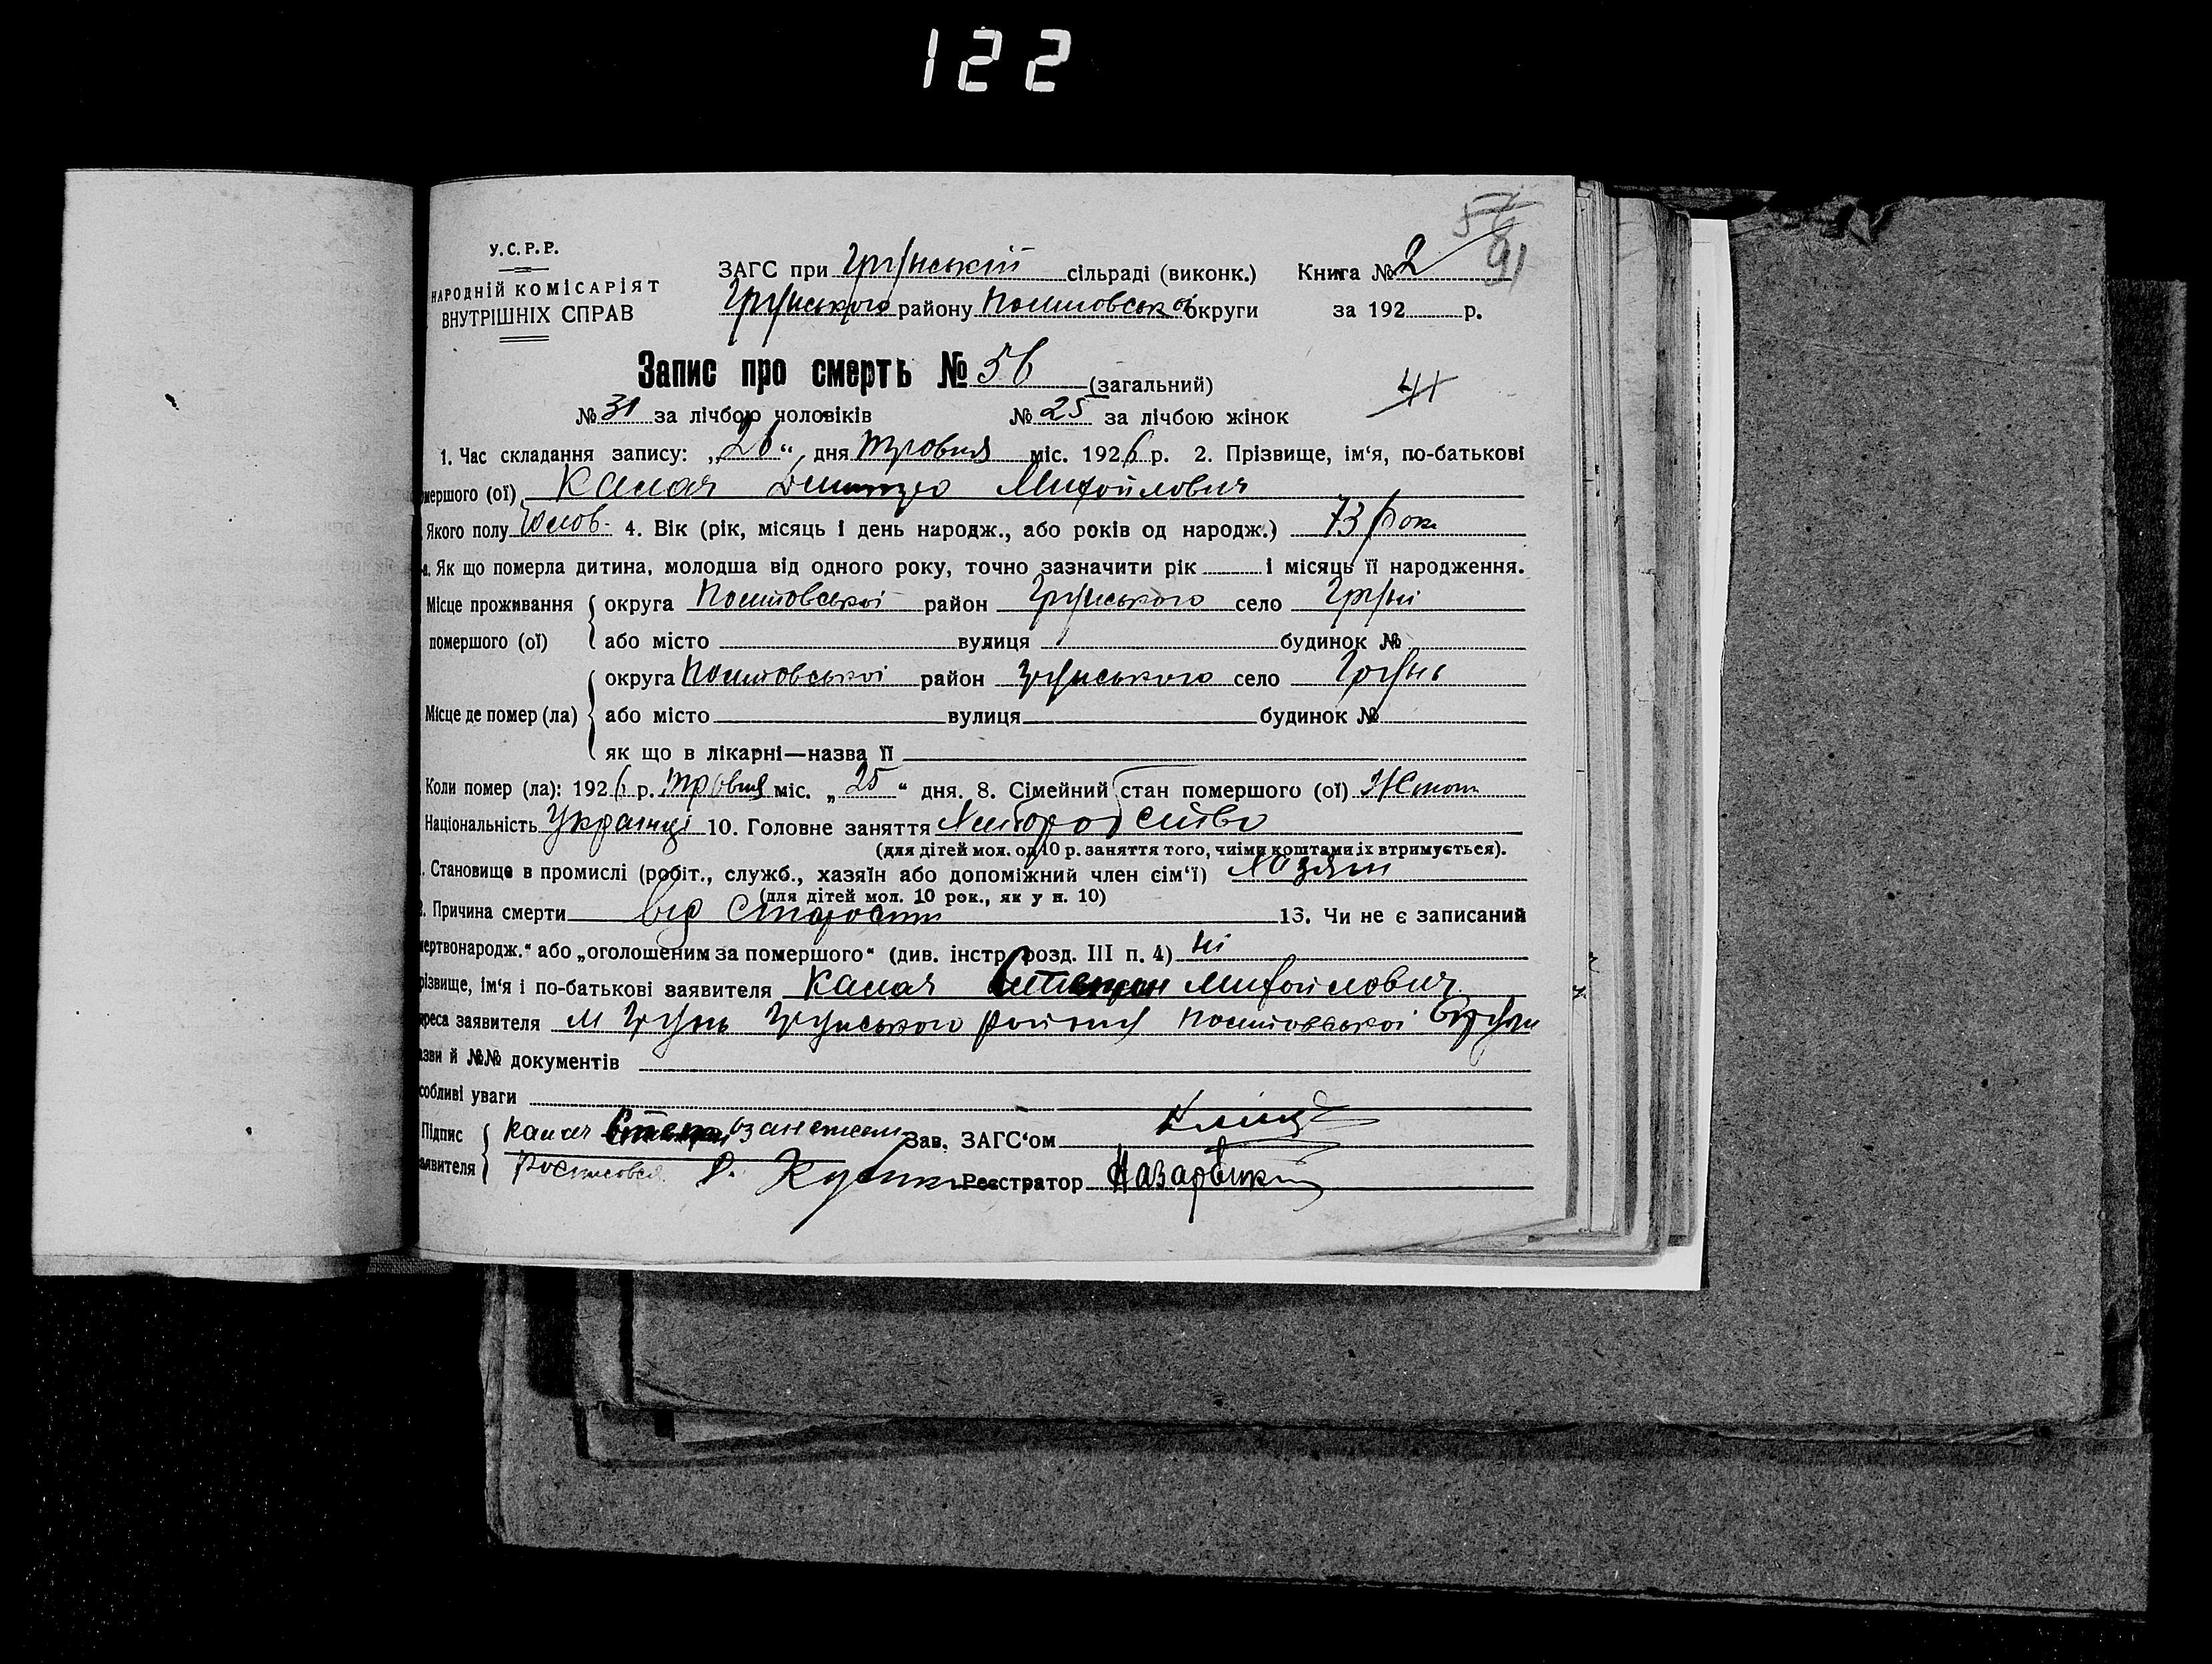 122
У.С.Р.Р.
НАРОДНІЙ КОМІСАРІЯТ
ВНУТРІШНІХ СПРАВ
ЗАГС при Грунській сільраді (виконк.) Книга № 2
Грунського району Полтовської округи за 192 р.
91
Запис про смерть № 56 (загальний)
№ 31 за лічбою чоловіків № 25 за лічбою жінок
1. Час складання запису: „26“ дня травня міс. 1926 р. 2. Прізвище, ім‘я, по-батькові
мершого (ої) Калач Дмитро Михойлович
Якого полу Чолов. 4. Вік (рік, місяць і день народж., або років од народж.) 73 роки
а. Як що померла дитина, молодша від одного року, точно зазначити рік і місяць її народження.
Місце проживання округа Полтовської район Грунського село Груні
помершого (ої) або місто вулиця будинок №
округа Полтовської район Грунського село Грунь
Місце де помер (ла) або місто вулиця будинок №
як що в лікарні—назва її
Коли помер (ла): 1926 р. травня міс. „25“ дня. 8. Сімейний стан помершого (ої) Жонат
Національність Українці 10. Головне заняття Хліборобство
(для дітей мол. од 10 р. заняття того, чиїми коштами їх втримується).
. Становище в промислі (робіт., служб., хазяїн або допоміжний член сім‘ї) Хазяін
(для дітей мол. 10 рок., як у н. 10)
. Причина смерти від старости 13. Чи не є записаний
мертвонародж.“ або „оголошеним за помершого“ (див. інстр. розд. III п. 4) ні
різвище, ім‘я і по-батькові заявителя Калач Степан Михойлович
дреса заявителя м Грунь Грунського району Полтовської Округи
азви й №№ документів
собливі уваги
Підпис Калач Степан
аявителя росписовся Зав. ЗАГС‘ом
Реєстратор